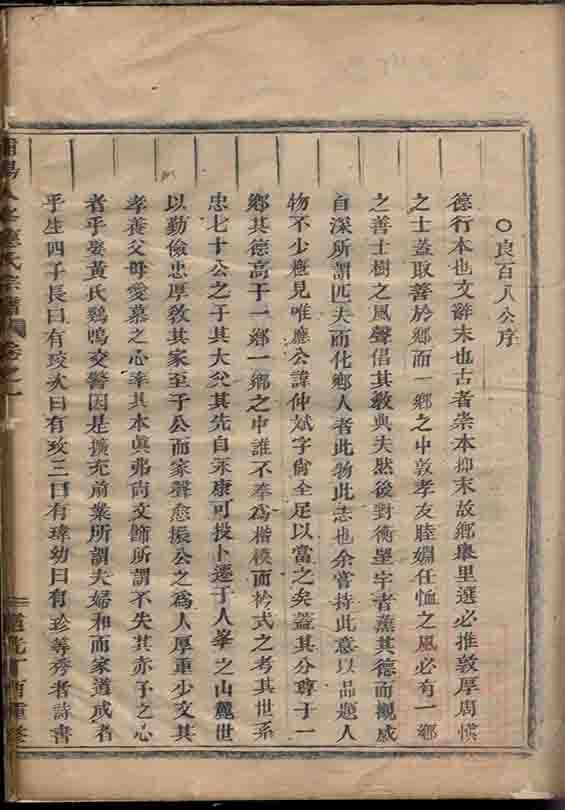 ○良百八公序
德行本也文辭末也古者崇本抑末故鄉舉里選必推敦厚周慎
之士蓋取善於鄉而一鄉之中敦孝友睦婣任恤之風必有一鄉
之善士樹之風聲倡其教典夫然後對衡望宇者薰其德而觀感
自深所謂匹夫而化鄉人者此物此志也余嘗持此意以品題人
物不少槩見唯應公諱仲斌字尙全足以當之矣蓋其分尊于一
鄉其德高于一鄉一鄉之中誰不奉爲楷模而衿式之考其世系
忠七十公之子其大父其先自永康可投卜遷于人峯之山麓世
以勤儉忠厚教其家至于公而家聲愈振公之爲人厚重少文其
孝養父母愛慕之心率其本眞弗尙文飾所謂不失其赤子之心
者乎娶黃氏鷄鳴交警因是擴充前業所謂夫婦和而家道成者
乎生四子長曰有玟次曰有玫三曰有瑋幼曰有珍等秀者詩書
陽人峯應氏宗譜 卷之一 道光丁酉重修